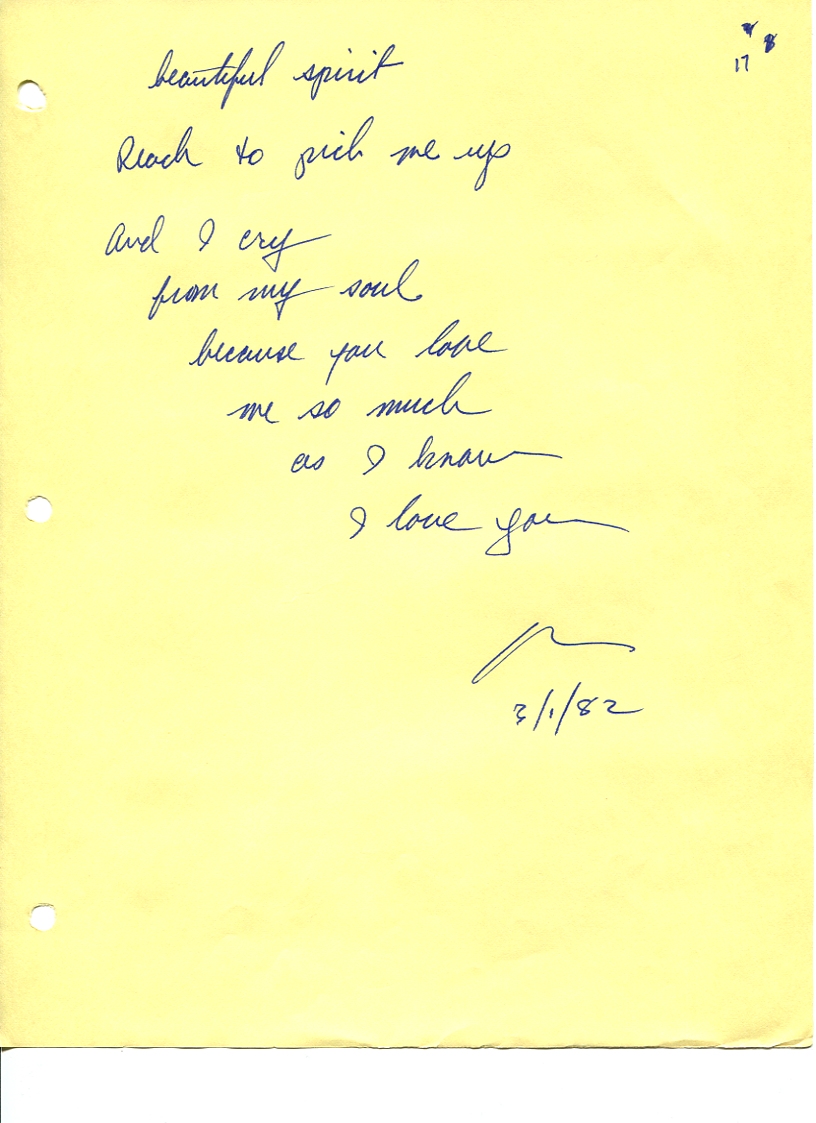 17
beautiful spirit
Reach to pick me up
And I cry
from my soul
because you love
me so much
as I know
I love you
3/1/82